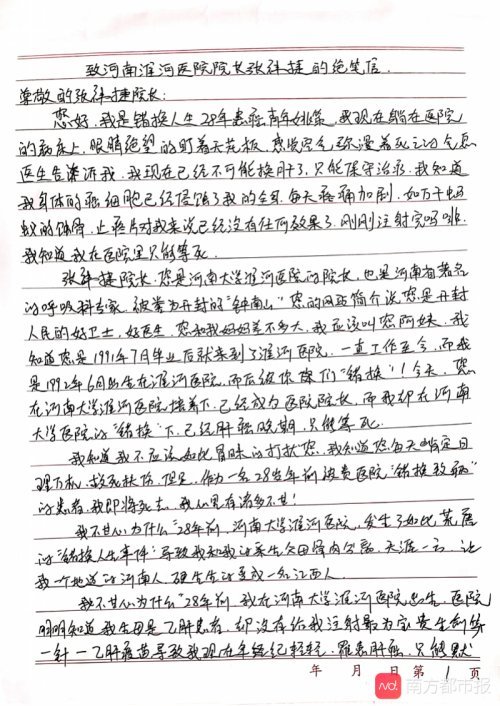 致河南淮河医院院长张祎捷的绝笔信.
尊敬的张祎捷院长:
您好.我是错换人生28年患癌青年姚策.我现在躺在医院
的病床上,眼睛绝望的盯着天花板.感觉房间弥漫着死亡的气息
医生告诉我.我现在已经不可能换肝了.只能保守治疗.我知道
我身体的癌细胞已经侵蚀了我的全身.每天疼痛加剧.如万千蚂
蚁的蚀骨.止疼片对我来说已经没有任何效果了.刚刚注射完吗啡.
我知道我在医院里只能等死.
张祎捷院长.您是河南大学淮河医院的院长,也是河南省著名
的呼吸科专家.被誉为开封的"钟南山".您的网站简介说.您是开封
人民的好卫士,好医生.您和我妈妈差不多大.我应该叫您阿姨.我
知道您是1991年7月毕业后就来到了淮河医院.一直工作至今.而我
是1992年6月出生在淮河医院.而后被你院们"错换"!今天,您
在河南大学淮河医院培养下.已经成为医院院长,而我却在河南
大学医院的"错换"下.已经肝癌晚期.只能等死.
我知道我不应该如此冒昧的打扰您.我知道您每天肯定日
理万机.救死扶伤.但是,作为一名28岁年前被贵医院"错换致病"
的患者.我即将死去.我心里有诸多不甘!
我不甘心为什么"28年前,河南大学淮河医院,发生了如此荒唐
的"错换人生事件"导致我和我的亲生父母骨肉分离.天涯一方.让
我一个地道的河南人.硬生生的变成一名江西人.
我不甘心为什么"28年前.我在河南大学淮河医院出生.医院
明明知道我生母是乙肝患者.却没有给我注射最为宝贵生命的第
一针—乙肝疫苗导致我现在年经纪轻轻.罹患肝癌.只能默
年 月 日第 1 页
南方都市报